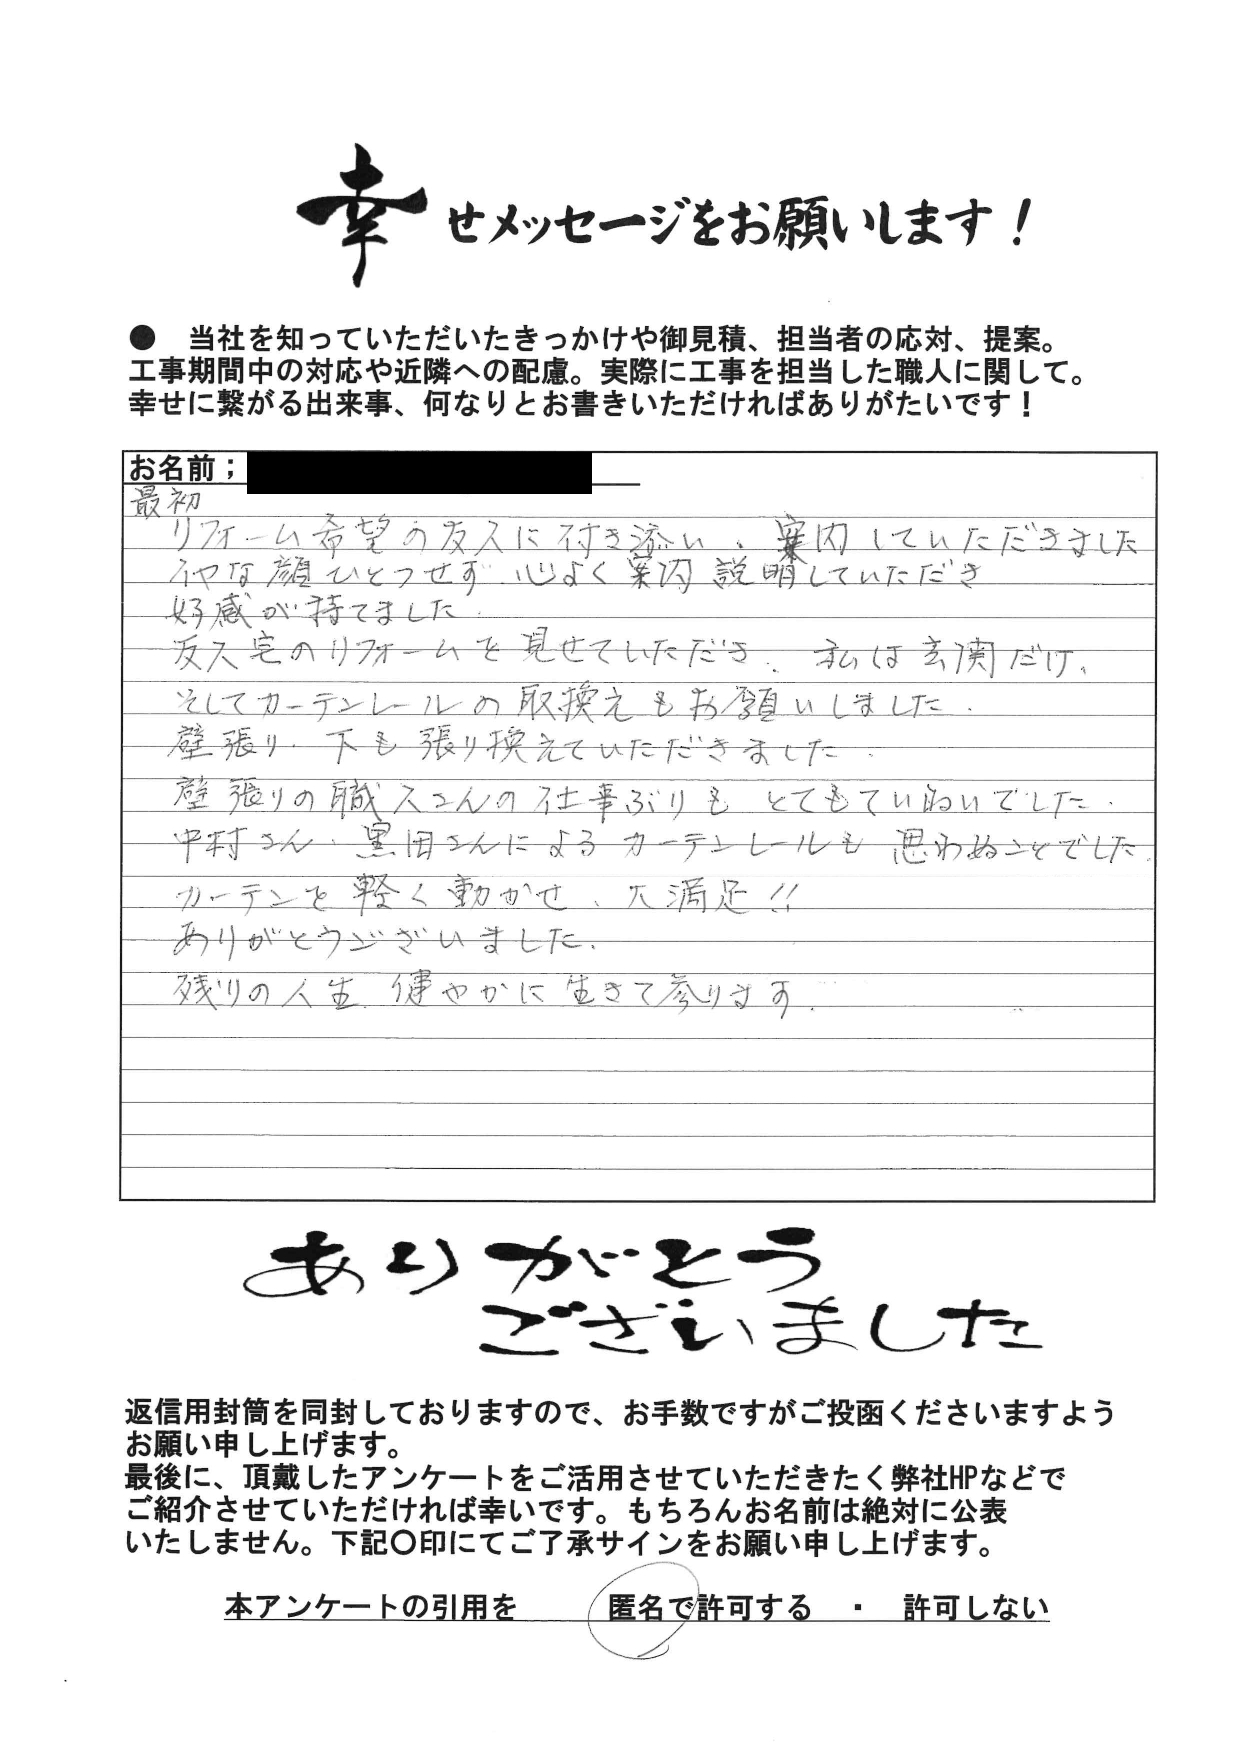 幸せメッセージをお願いします！
● 当社を知っていただいたきっかけや御見積、担当者の応対、提案。
工事期間中の対応や近隣への配慮。実際に工事を担当した職人に関して。
幸せに繋がる出来事、何なりとお書きいただければありがたいです！
お名前；
最初
リフォーム希望の友人に付き添い、案内していただきました
イヤな顔ひとつせず 心よく案内説明していただき
好感が持てました.
友人宅のリフォームを見せていただき、私は玄関だけ、
そしてカーテンレールの取換えもお願いしました.
壁張り、下も張り換えていただきました.
壁張りの職人さんの仕事ぶりも とてもていねいでした.
中村さん、黒田さんによるカーテンレールも 思わぬことでした.
カーテンを軽く動かせ、大満足!!
ありがとうございました.
残りの人生 健やかに生きて参ります.
ありがとう
ございました
返信用封筒を同封しておりますので、お手数ですがご投函くださいますよう
お願い申し上げます。
最後に、頂戴したアンケートをご活用させていただきたく弊社HPなどで
ご紹介させていただければ幸いです。もちろんお名前は絶対に公表
いたしません。下記〇印にてご了承サインをお願い申し上げます。
本アンケートの引用を 匿名で許可する ・ 許可しない